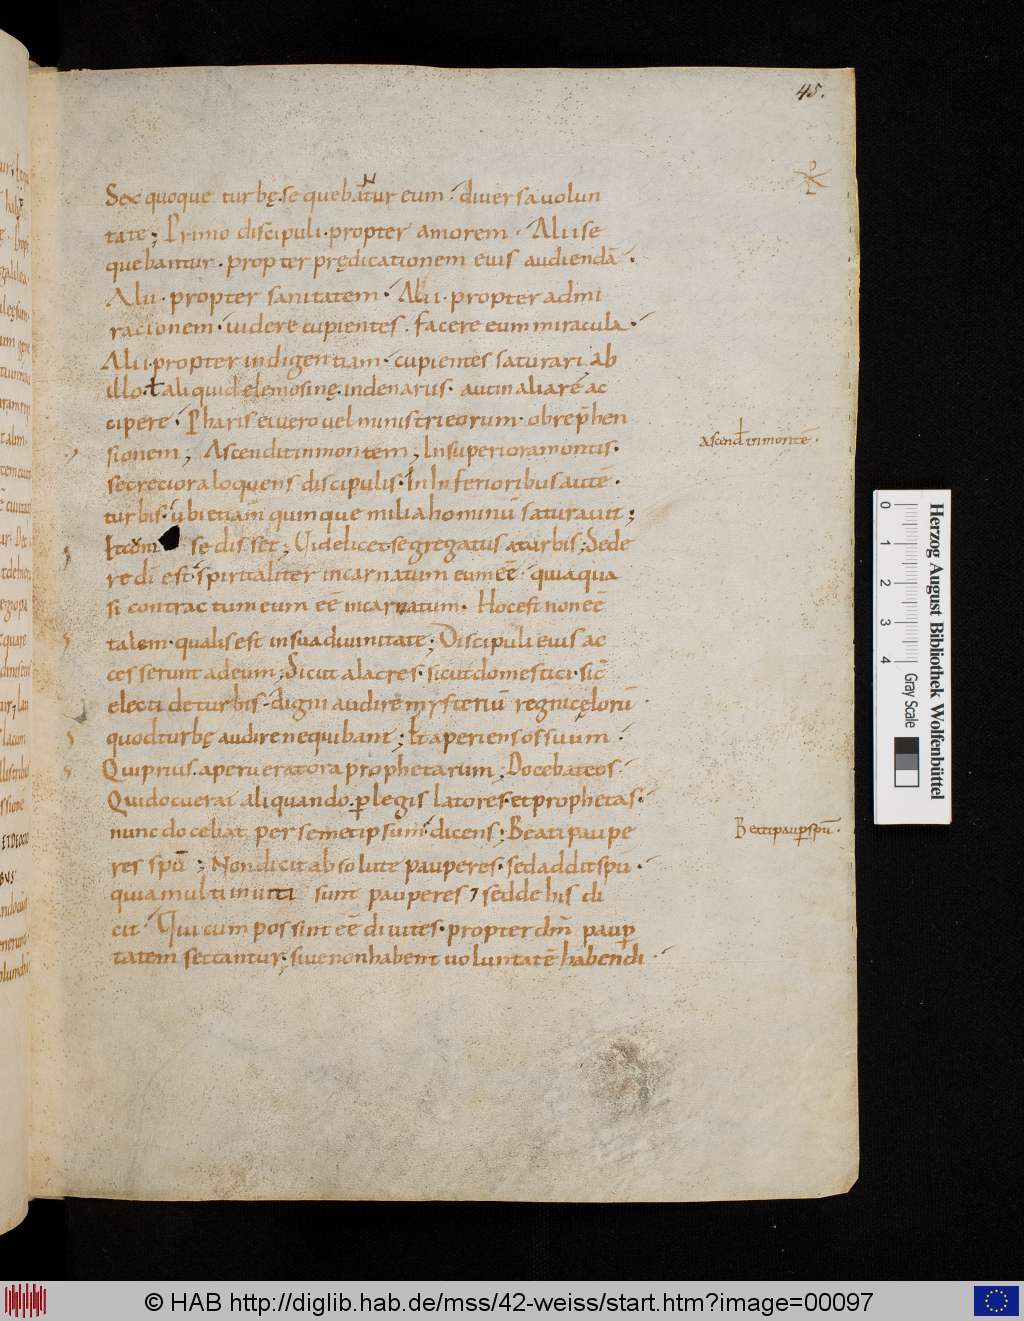 45.
Sex quoque turbę. se quebaNtur eum. diversa volun
tate; Primo discipuli. propter amorem. Alii se
quebantur. propter prędicationem eius audiendā.
Alii. propter sanitatem. Alii. propter admi
racionem. videre cupientes. facere eum miracula.
Alii. propter indigentiam. cupientes saturari ab
illo. t̄ aliquid elemosinę. in denariis. aut in aliare ac
cipere. Pharisei vero vel ministri eorum. ob rep̄hen
sionem; Ascendit in montem; In superiora montis.
secretiora loquens discipulis. In inferioribus autē.
turbis. ubi etiam quinque milia hominū saturavit;
Et com se dis set; Videlicet segregatus a turbis; Sede
re dī est. spiritaliter incarnatum eum eē. quia qua
si contractum eum eē incarnatum. Hoc est non eē
talem. qualis est in sua divinitate; Discipuli eius ac
cesserunt ad eum; Sicut alacres. sicut domestici. sic̄
electi de turbis. digni audire mysteriū regni cęlorū.
quod turbę audire nequibant; Et aperiens os suum.
Qui prius. aperuerat ora prophetarum; Docebat eos.
Qui docuerat aliquando. p̱ legis latores. et prophetas.
nunc docebat per semetipsum. dicens; Beati paupe
res spū; Non dicit absolute pauperes. sed addit spū.
quia multi inviti sunt pauperes, sed de his di
cit. Qui cum possint eē divites. propter dm̄ paup̱
tatem sectantur; sive non habent voluntatē habendi.
Ascend̄ in montē.
Beati paup̱ spū.
0
1
2
3
4
Gray Scale
Herzog August Bibliothek Wolfenbüttel
© HAB http://diglib.hab.de/mss/42-weiss/start.htm?image=00097